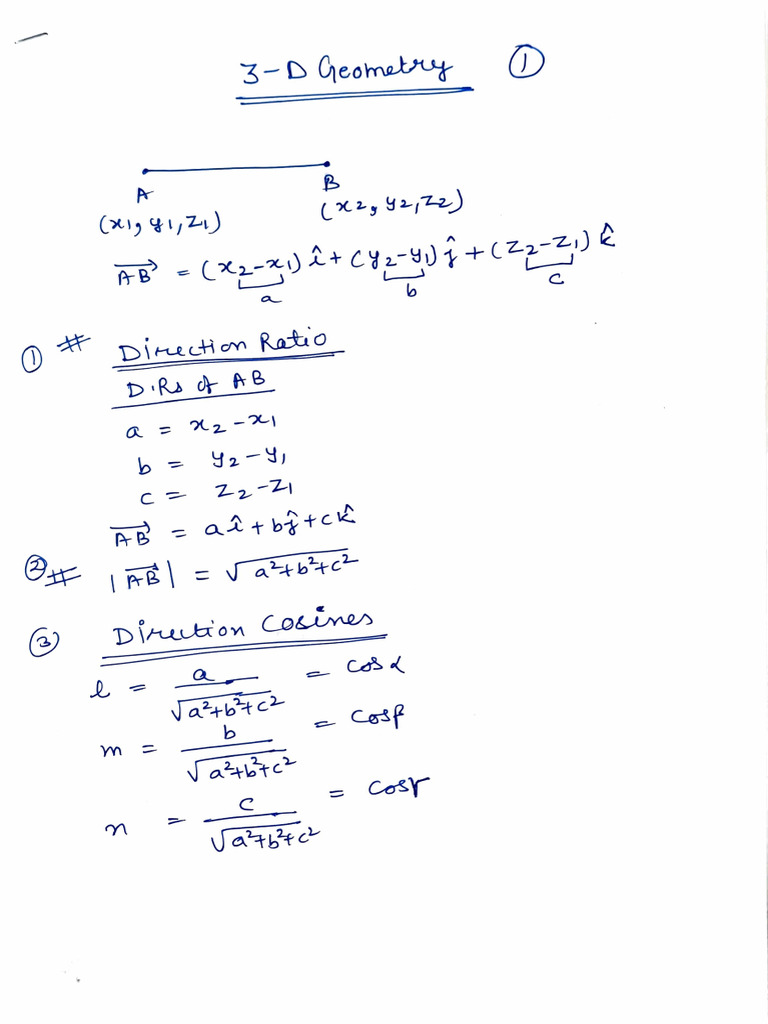 3-D Geometry ①
A B
(x1, y1, z1) (x2, y2, z2)
AB⃗ = (x2-x1) î + (y2-y1) ĵ + (z2-z1) k̂
a b c
① # Direction Ratio
D.Rs of AB
a = x2-x1
b = y2-y1
c = z2-z1
AB⃗ = aî+bĵ+ck̂
② # |AB⃗| = √a²+b²+c²
③ Direction Cosines
l = a/√a²+b²+c² = cosα
m = b/√a²+b²+c² = cosβ
n = c/√a²+b²+c² = cosγ